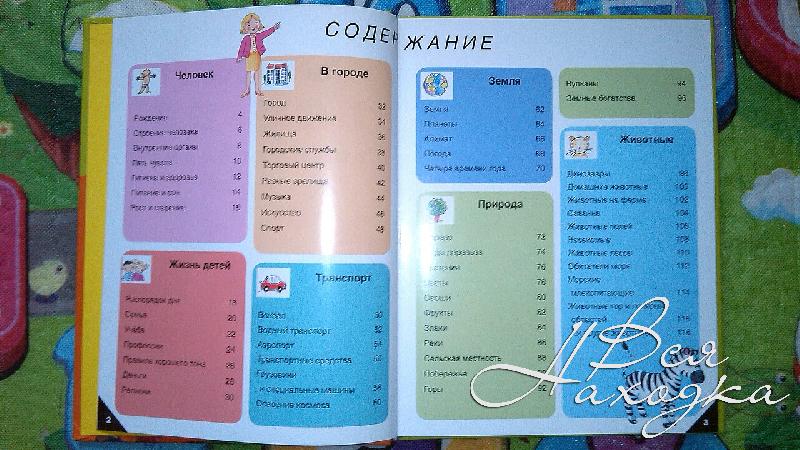 СОДЕРЖАНИЕ
Человек
Рождение 4
Строение человека 6
Внутренние органы 8
Пять чувств 10
Гигиена и здоровье 12
Питание и сон 14
Рост и старение 16
Жизнь детей
Распорядок дня 18
Семья 20
Учёба 22
Профессии 24
Правила хорошего тона 26
Деньги 28
Религии 30
В городе
Город 32
Уличное движение 34
Жилища 36
Городские службы 38
Торговый центр 40
Разные зрелища 42
Музыка 44
Искусство 46
Спорт 48
Транспорт
Вокзал 50
Водный транспорт 52
Аэропорт 54
Транспортные средства 56
Грузовики
и специальные машины 58
Освоение космоса 60
Земля
Земля 62
Планеты 64
Климат 66
Погода 68
Четыре времени года 70
Природа
72
74
76
Цветы 76
Овощи 80
Фрукты 82
Злаки 84
Реки 86
Сельская местность 88
Побережье
Горы 92
Вулканы 94
Земные богатства 96
Животные
Динозавры 98
Домашние животные 100
Животные на ферме 102
Саванна 104
Животные полей 106
Насекомые 108
Животные лесов 110
Обитатели моря
Морские
млекопитающие 114
Животные гор и
областей 116
2
3
Вся
Находка